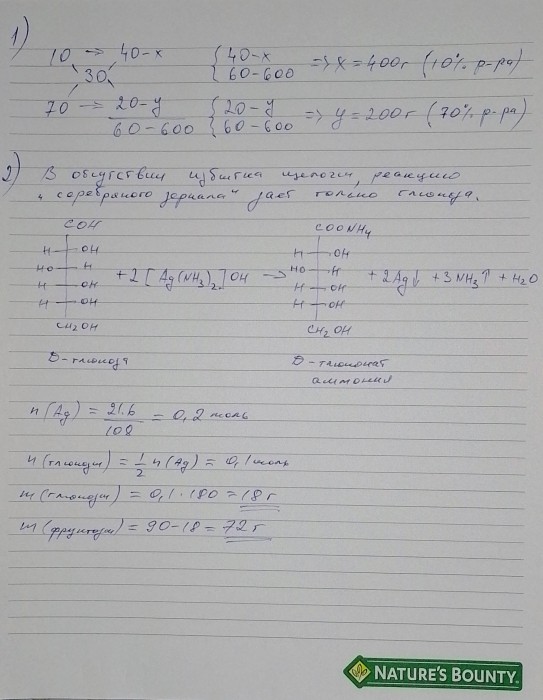 1)
10 → 40-x { 40-x
30 { 60-600 => x = 400г (10% р-ра)
70 → 20-y { 20-y
60-600 { 60-600 => y = 200г (70% р-ра)
2) В отсутствии избытка щелочи, реакцию
"серебряного зеркала" дает только глюкоза.
COH COONH4
H OH H OH
HO H + 2[Ag(NH3)2]OH → HO H + 2Ag↓ + 3NH3↑ + H2O
H OH H OH
H OH H OH
CH2OH CH2OH
D-глюкоза D-глюконат
аммония
n(Ag) = 21.6/108 = 0,2 моль
n(глюкозы) = 1/2 n(Ag) = 0,1 моль
m(глюкозы) = 0,1 · 180 = 18 г
m(фруктозы) = 90-18 = 72 г
NATURE'S BOUNTY.